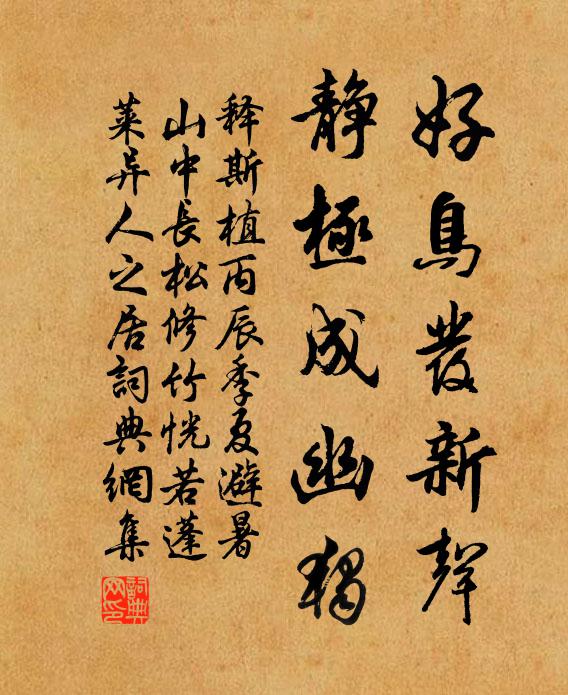 好鳥發新聲
靜極成幽獨
释斯植丙辰季夏避暑
山中長松修竹恍若蓬
萊异人之居詞典網集
詞典
网印